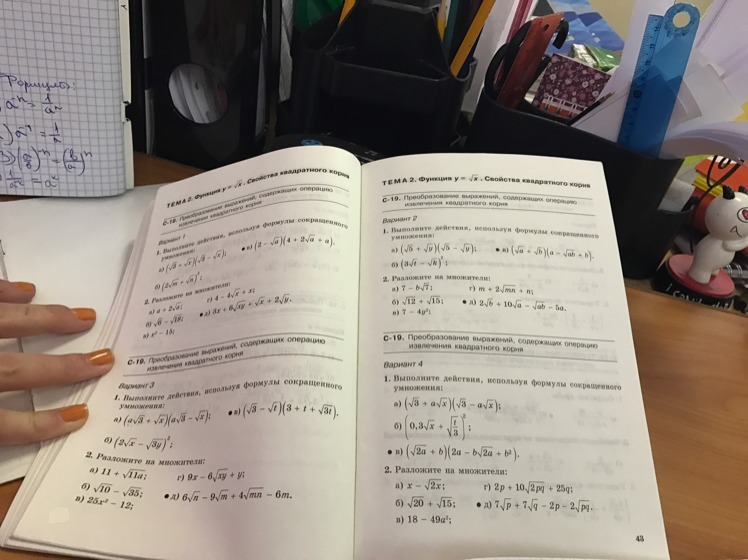 Формулы:
ТЕМА 2. Функция y = √x. Свойства квадратного корня
С-19. Преобразование выражений, содержащих операцию
извлечения квадратного корня
Вариант 1
1. Выполните действия, используя формулы сокращенного
умножения:
б) (2√m + √n)²;
● в) (2 − √a)(4 + 2√a + a).
2. Разложите на множители:
а) a + 2√a;
г) 4 − 4√x + x;
б) √6 − √18;
● д) 3x + 6√xy + √x + 2√y.
в) x² − 15;
С-19. Преобразование выражений, содержащих операцию
извлечения квадратного корня
Вариант 3
1. Выполните действия, используя формулы сокращенного
умножения:
а) (a√3 + √x)(a√3 − √x);
● в) (√3 − √t)(3 + t + √3t).
б) (2√x − √3y)²;
2. Разложите на множители:
а) 11 + √11a;
г) 9x − 6√xy + y;
б) √10 − √35;
● д) 6√n − 9√m + 4√mn − 6m.
в) 25x² − 12;
ТЕМА 2. Функция y = √x. Свойства квадратного корня
С-19. Преобразование выражений, содержащих операцию
извлечения квадратного корня
Вариант 2
1. Выполните действия, используя формулы сокращенного
умножения:
а) (√5 + √y)(√5 − √y);
● в) (√a + √b)(a − √ab + b).
б) (3√t − √k)²;
2. Разложите на множители:
а) 7 − b√7;
г) m + 2√mn + n;
б) √12 + √15;
● д) 2√b + 10√a − √ab − 5a.
в) 7 − 4y²;
С-19. Преобразование выражений, содержащих операцию
извлечения квадратного корня
Вариант 4
1. Выполните действия, используя формулы сокращенного
умножения:
а) (√3 + a√x)(√3 − a√x);
б) (0,3√x + √(t/3))²;
● в) (√2a + b)(2a − b√2a + b²).
2. Разложите на множители:
а) x − √2x;
г) 2p + 10√2pq + 25q;
б) √20 + √15;
● д) 7√p + 7√q − 2p − 2√pq.
в) 18 − 49a²;
43